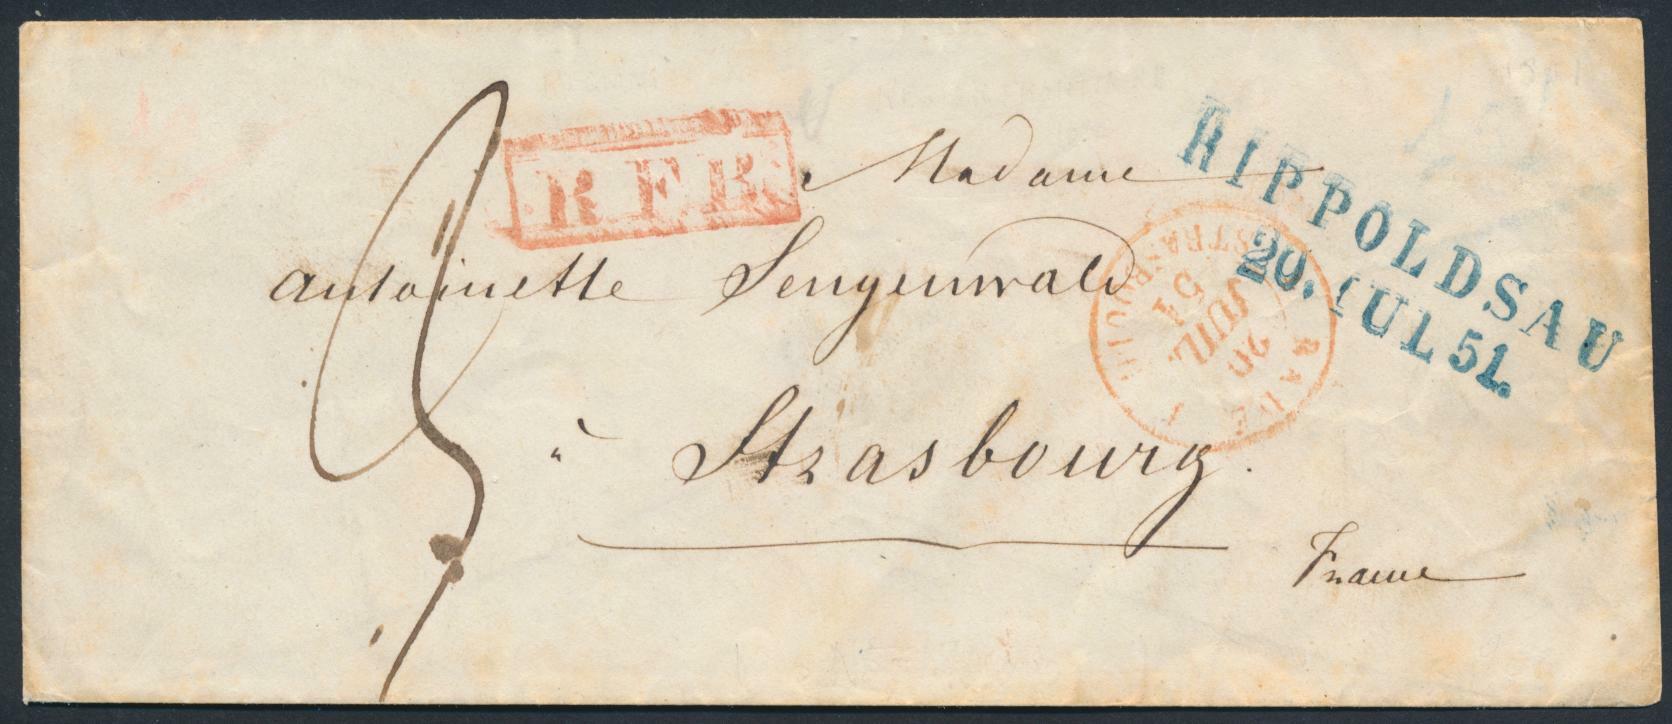 R. F. B.
Madame
RIPPOLDSAU
20. IUL 51.
Antoinette Sengenwald
à Strasbourg.
France
20
JUIL.
51
BADE
STRASBOURG